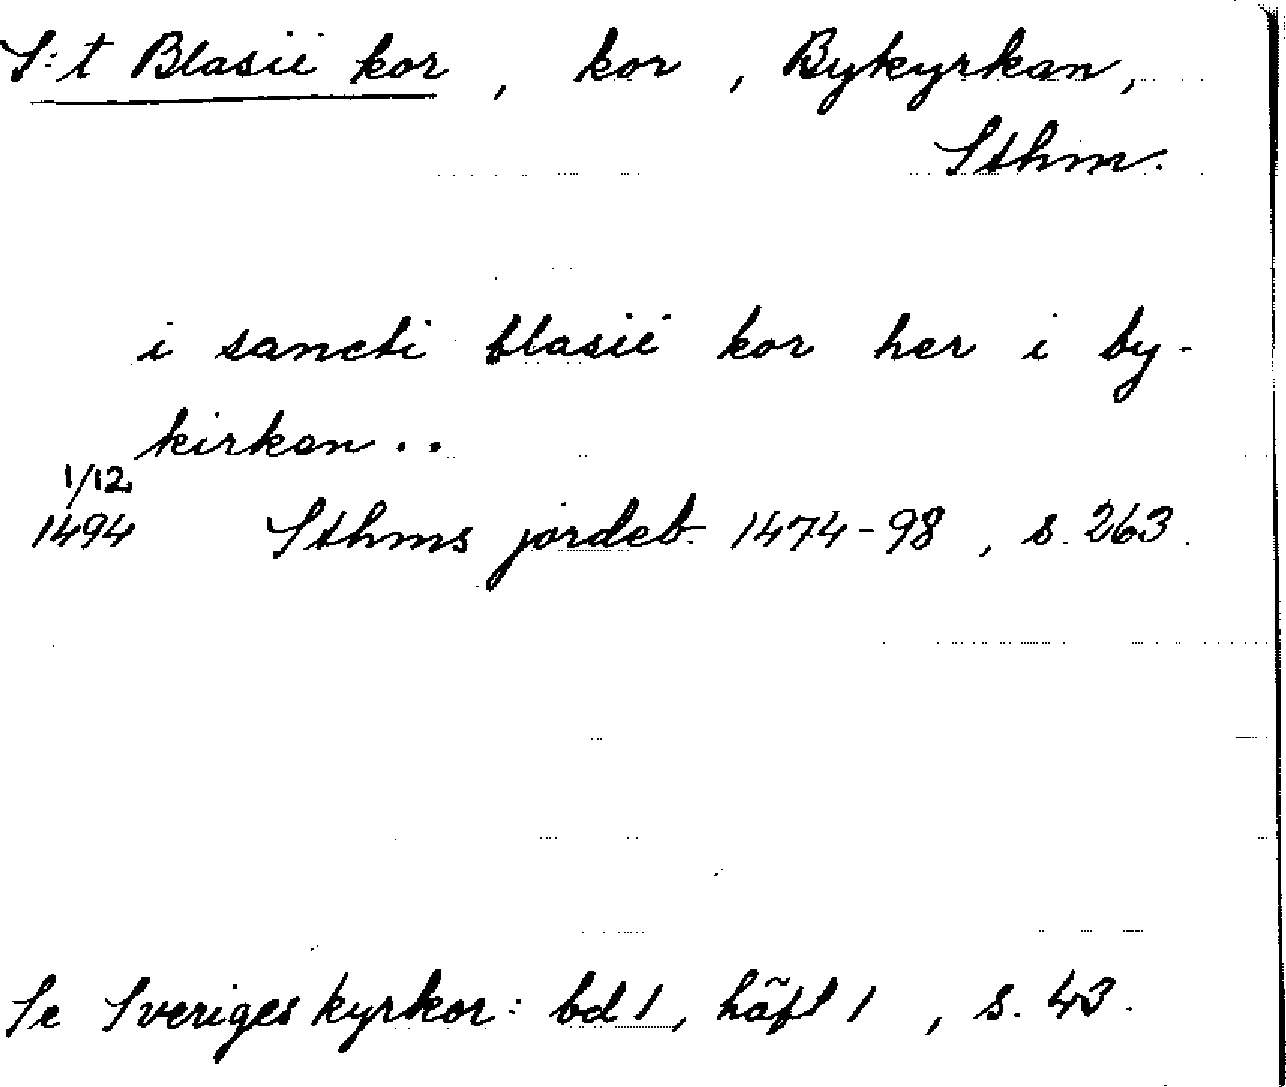 S:t Blasii kor, kor, Bykyrkan,
Sthm.
i sancti blasii kor her i by-
kirkan..
1/12
1494 Sthms jordeb. 1474-98, s. 263.
Se Sveriges kyrkor: bd 1, häft 1, s. 43.